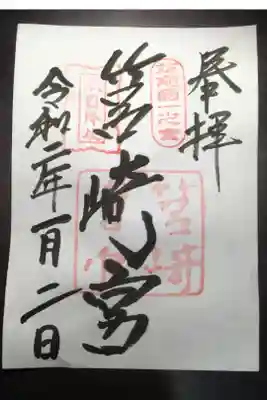 奉拝
筑前國一之宮
筥崎宮
令和二年一月二日